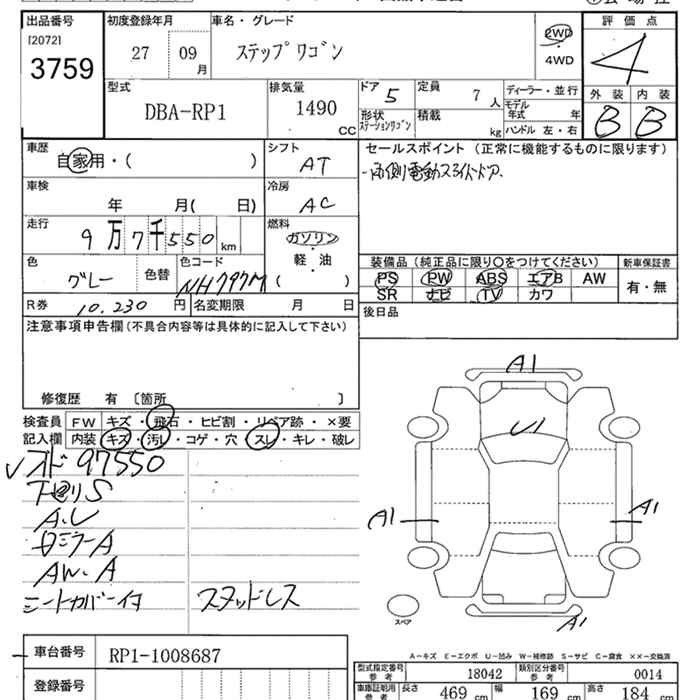 出品番号
[2072]
3759
初度登録年月
27 09 月
車名・グレード
ステップワゴン
2WD
・
4WD
評価点
4
型式
DBA-RP1
排気量
1490 CC
ドア 5
定員 7 人
形状 ステーションワゴン
積載 kg
ディーラー・並行
モデル年式 年
ハンドル 左・右
外装 内装
B B
車歴
自家用・( )
シフト
AT
セールスポイント (正常に機能するものに限ります)
・両側電動スライドドア.
車検
年 月( 日)
冷房
AC
走行
9万7千550 km
燃料
ガソリン
軽・油
( )
色
グレー
色替
色コード
NH797M
装備品 (純正品に限り○をつけてください)
PS PW ABS エアB AW
SR ナビ TV カワ
新車保証書
有・無
R券 10,230 円
名変期限 月 日
後日品
注意事項申告欄(不具合内容等は具体的に記入して下さい)
修復歴 有 〔箇所 〕
検査員
記入欄
FW キズ・飛石・ヒビ割・リペア跡・×要
内装 キズ・汚レ・コゲ・穴・スレ・キレ・破レ
オド 97550
下廻りS
A.U
ミラーA
AW.A
シートカバーイタ
スタッドレス
A1
U1
A1
A1
A1
スペア
A-キズ E-エクボ U-凹み W-補修跡 S-サビ C-腐食 ××-交換済
車台番号 RP1-1008687
登録番号
型式指定番号
参考
18042
類別区分番号
参考
0014
車庫証明用
参考
長さ 469 cm
幅 169 cm
高さ 184 cm